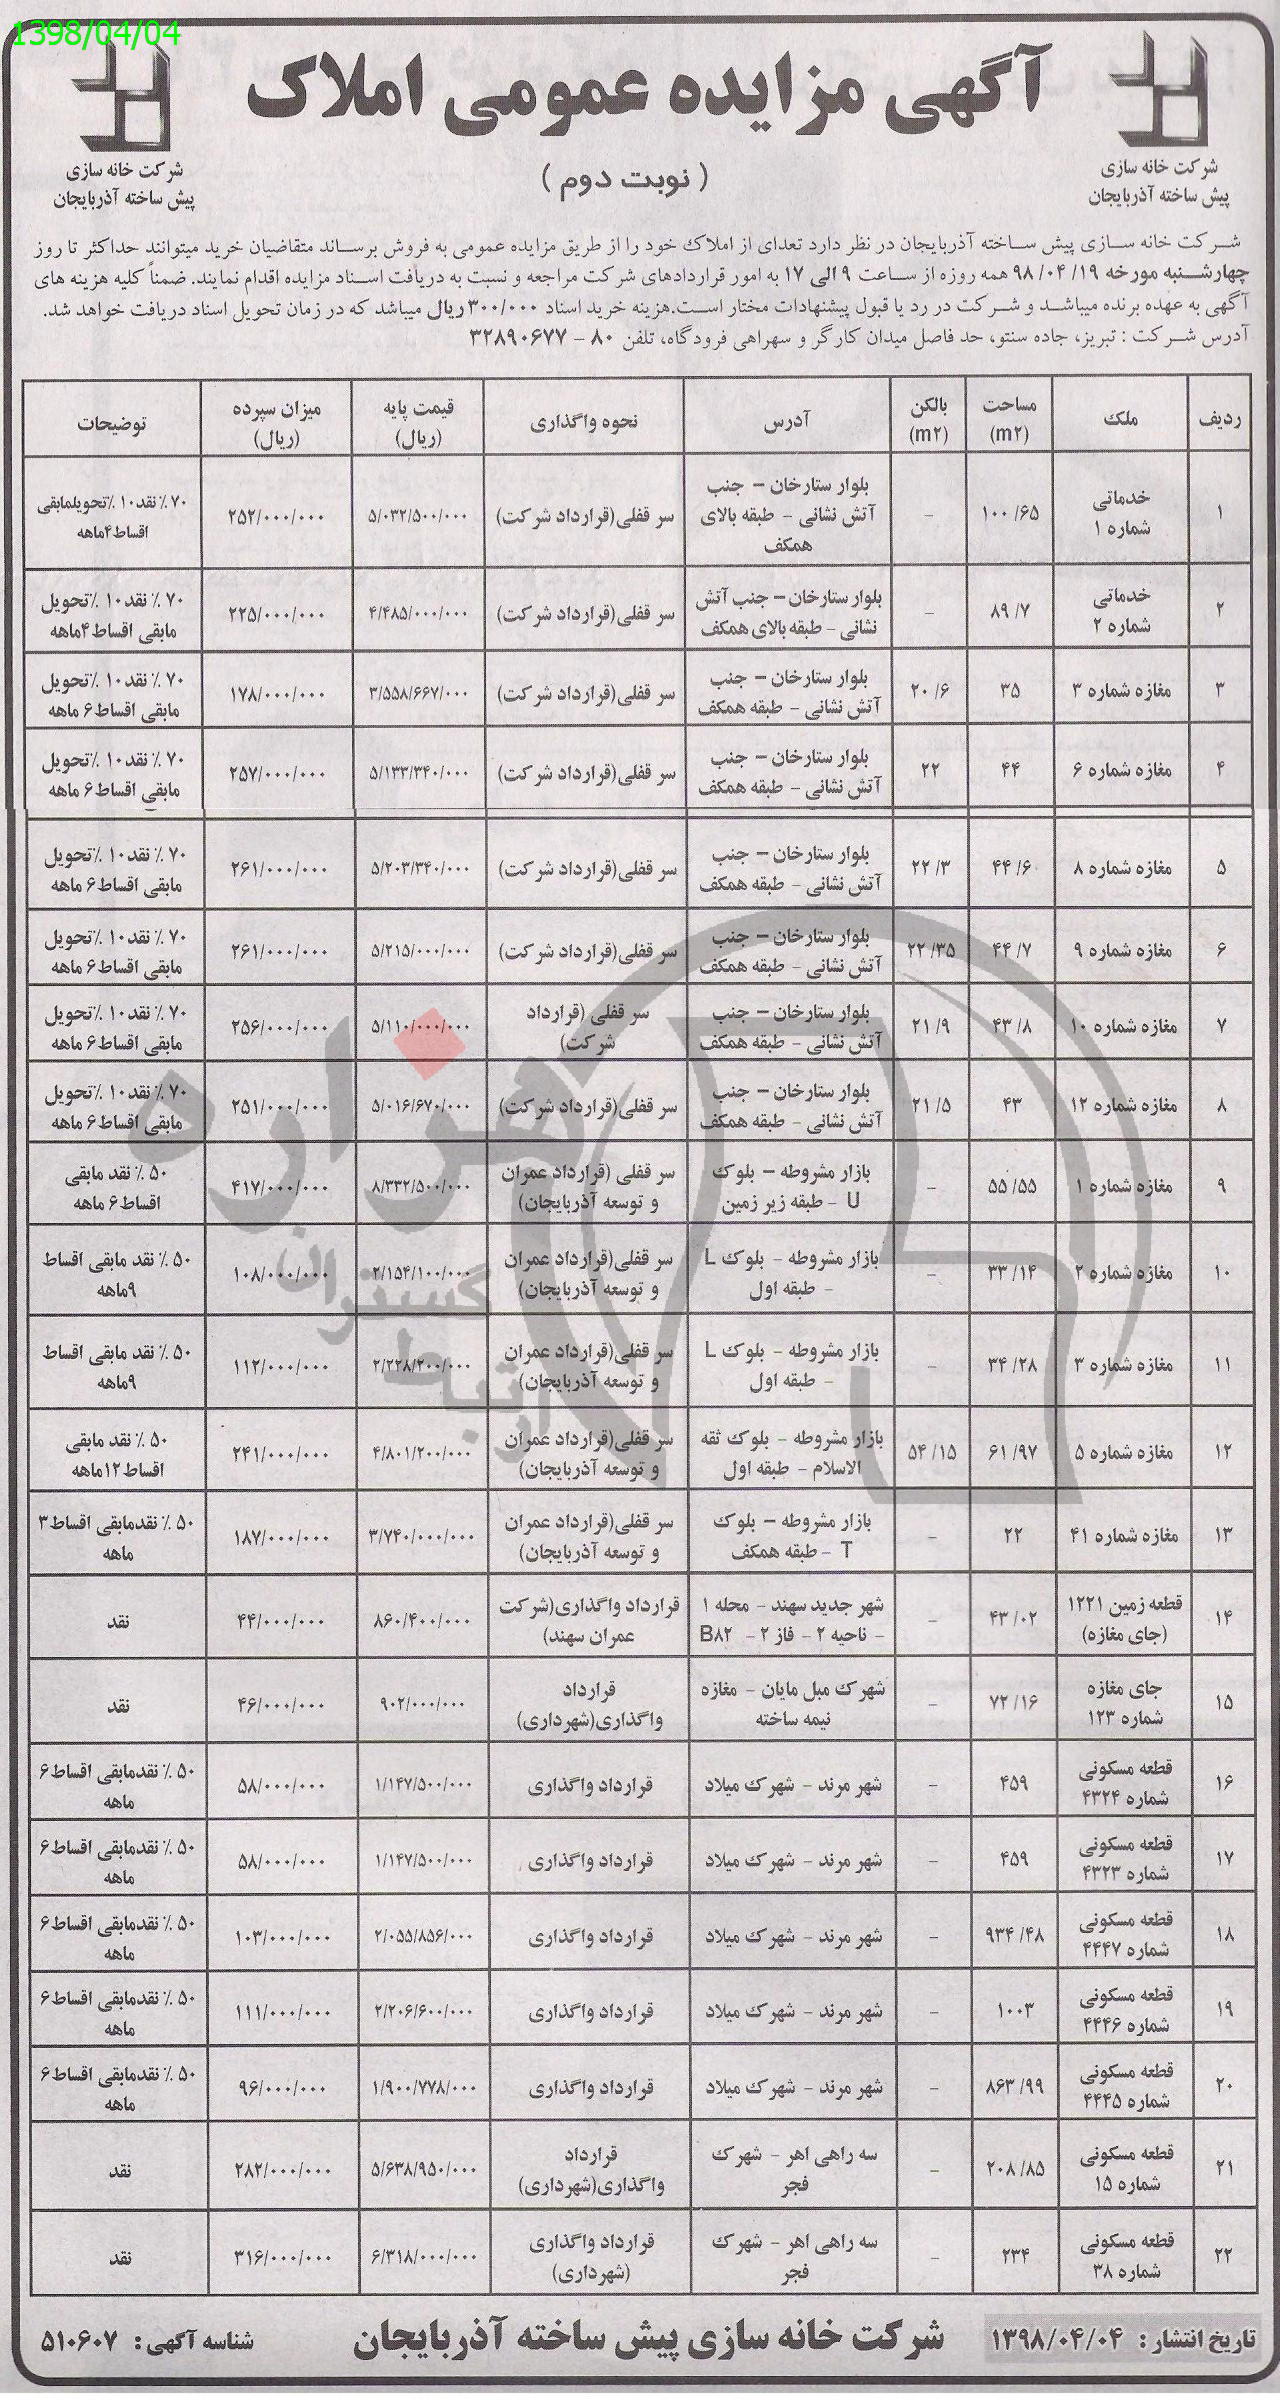 1398/04/04
آگهی مزایده عمومی املاک
( نوبت دوم )
شرکت خانه سازی
پیش ساخته آذربایجان
شرکت خانه سازی
پیش ساخته آذربایجان
شرکت خانه سازی پیش ساخته آذربایجان در نظر دارد تعدای از املاک خود را از طریق مزایده عمومی به فروش برساند متقاضیان خرید میتوانند حداکثر تا روز
چهارشنبه مورخه ۹۸/۰۴/۱۹ همه روزه از ساعت ۹ الی ۱۷ به امور قراردادهای شرکت مراجعه و نسبت به دریافت اسناد مزایده اقدام نمایند. ضمناً کلیه هزینه های
آگهی به عهده برنده میباشد و شرکت در رد یا قبول پیشنهادات مختار است.هزینه خرید اسناد ۳۰۰/۰۰۰ ریال میباشد که در زمان تحویل اسناد دریافت خواهد شد.
آدرس شرکت : تبریز، جاده سنتو، حد فاصل میدان کارگر و سهراهی فرودگاه، تلفن ۸۰ - ۳۲۸۹۰۶۷۷
ردیف | ملک | مساحت (m۲) | بالکن (m۲) | آدرس | نحوه واگذاری | قیمت پایه (ریال) | میزان سپرده (ریال) | توضیحات
۱ | خدماتی شماره ۱ | ۱۰۰/۶۵ | - | بلوار ستارخان – جنب آتش نشانی - طبقه بالای همکف | سر قفلی(قرارداد شرکت) | ۵/۰۳۲/۵۰۰/۰۰۰ | ۲۵۲/۰۰۰/۰۰۰ | ۷۰٪ نقد۱۰٪تحویلمابقی اقساط۴ماهه
۲ | خدماتی شماره ۲ | ۸۹/۷ | - | بلوار ستارخان – جنب آتش نشانی - طبقه بالای همکف | سر قفلی(قرارداد شرکت) | ۴/۴۸۵/۰۰۰/۰۰۰ | ۲۲۵/۰۰۰/۰۰۰ | ۷۰٪ نقد۱۰٪تحویل مابقی اقساط۴ماهه
۳ | مغازه شماره ۳ | ۳۵ | ۲۰/۶ | بلوار ستارخان – جنب آتش نشانی - طبقه همکف | سر قفلی(قرارداد شرکت) | ۳/۵۵۸/۶۶۷/۰۰۰ | ۱۷۸/۰۰۰/۰۰۰ | ۷۰٪ نقد۱۰٪تحویل مابقی اقساط۶ ماهه
۴ | مغازه شماره ۶ | ۴۴ | ۲۲ | بلوار ستارخان – جنب آتش نشانی - طبقه همکف | سر قفلی(قرارداد شرکت) | ۵/۱۳۳/۳۴۰/۰۰۰ | ۲۵۷/۰۰۰/۰۰۰ | ۷۰٪ نقد۱۰٪تحویل مابقی اقساط۶ ماهه
۵ | مغازه شماره ۸ | ۴۴/۶ | ۲۲/۳ | بلوار ستارخان – جنب آتش نشانی - طبقه همکف | سر قفلی(قرارداد شرکت) | ۵/۲۰۳/۳۴۰/۰۰۰ | ۲۶۱/۰۰۰/۰۰۰ | ۷۰٪ نقد۱۰٪تحویل مابقی اقساط۶ ماهه
۶ | مغازه شماره ۹ | ۴۴/۷ | ۲۲/۳۵ | بلوار ستارخان – جنب آتش نشانی - طبقه همکف | سر قفلی(قرارداد شرکت) | ۵/۲۱۵/۰۰۰/۰۰۰ | ۲۶۱/۰۰۰/۰۰۰ | ۷۰٪ نقد۱۰٪تحویل مابقی اقساط۶ ماهه
۷ | مغازه شماره ۱۰ | ۴۳/۸ | ۲۱/۹ | بلوار ستارخان – جنب آتش نشانی - طبقه همکف | سر قفلی (قرارداد شرکت) | ۵/۱۱۰/۰۰۰/۰۰۰ | ۲۵۶/۰۰۰/۰۰۰ | ۷۰٪ نقد۱۰٪تحویل مابقی اقساط۶ ماهه
۸ | مغازه شماره ۱۲ | ۴۳ | ۲۱/۵ | بلوار ستارخان – جنب آتش نشانی - طبقه همکف | سر قفلی(قرارداد شرکت) | ۵/۰۱۶/۶۷۰/۰۰۰ | ۲۵۱/۰۰۰/۰۰۰ | ۷۰٪ نقد۱۰٪تحویل مابقی اقساط۶ ماهه
۹ | مغازه شماره ۱ | ۵۵/۵۵ | - | بازار مشروطه – بلوک U - طبقه زیر زمین | سر قفلی (قرارداد عمران و توسعه آذربایجان) | ۸/۳۳۲/۵۰۰/۰۰۰ | ۴۱۷/۰۰۰/۰۰۰ | ۵۰٪ نقد مابقی اقساط۶ ماهه
۱۰ | مغازه شماره ۲ | ۳۳/۱۴ | - | بازار مشروطه - بلوک L - طبقه اول | سر قفلی(قرارداد عمران و توسعه آذربایجان) | ۲/۱۵۴/۱۰۰/۰۰۰ | ۱۰۸/۰۰۰/۰۰۰ | ۵۰٪ نقد مابقی اقساط ۹ماهه
۱۱ | مغازه شماره ۳ | ۳۴/۲۸ | - | بازار مشروطه - بلوک L - طبقه اول | سر قفلی(قرارداد عمران و توسعه آذربایجان) | ۲/۲۲۸/۲۰۰/۰۰۰ | ۱۱۲/۰۰۰/۰۰۰ | ۵۰٪ نقد مابقی اقساط ۹ماهه
۱۲ | مغازه شماره ۵ | ۶۱/۹۷ | ۵۴/۱۵ | بازار مشروطه - بلوک ثقه الاسلام - طبقه اول | سر قفلی(قرارداد عمران و توسعه آذربایجان) | ۴/۸۰۱/۲۰۰/۰۰۰ | ۲۴۱/۰۰۰/۰۰۰ | ۵۰٪ نقد مابقی اقساط۱۲ماهه
۱۳ | مغازه شماره ۴۱ | ۲۲ | - | بازار مشروطه – بلوک T - طبقه همکف | سر قفلی(قرارداد عمران و توسعه آذربایجان) | ۳/۷۴۰/۰۰۰/۰۰۰ | ۱۸۷/۰۰۰/۰۰۰ | ۵۰٪ نقدمابقی اقساط۳ ماهه
۱۴ | قطعه زمین ۱۲۲۱ (جای مغازه) | ۴۳/۰۲ | - | شهر جدید سهند - محله ۱ - ناحیه ۲ - فاز ۲ - B۸۲ | قرارداد واگذاری(شرکت عمران سهند) | ۸۶۰/۴۰۰/۰۰۰ | ۴۴/۰۰۰/۰۰۰ | نقد
۱۵ | جای مغازه شماره ۱۲۳ | ۷۲/۱۶ | - | شهرک مبل مایان - مغازه نیمه ساخته | قرارداد واگذاری(شهرداری) | ۹۰۲/۰۰۰/۰۰۰ | ۴۶/۰۰۰/۰۰۰ | نقد
۱۶ | قطعه مسکونی شماره ۴۳۲۴ | ۴۵۹ | - | شهر مرند - شهرک میلاد | قرارداد واگذاری | ۱/۱۴۷/۵۰۰/۰۰۰ | ۵۸/۰۰۰/۰۰۰ | ۵۰٪ نقدمابقی اقساط۶ ماهه
۱۷ | قطعه مسکونی شماره ۴۳۲۳ | ۴۵۹ | - | شهر مرند - شهرک میلاد | قرارداد واگذاری | ۱/۱۴۷/۵۰۰/۰۰۰ | ۵۸/۰۰۰/۰۰۰ | ۵۰٪ نقدمابقی اقساط۶ ماهه
۱۸ | قطعه مسکونی شماره ۴۴۴۷ | ۹۳۴/۴۸ | - | شهر مرند - شهرک میلاد | قرارداد واگذاری | ۲/۰۵۵/۸۵۶/۰۰۰ | ۱۰۳/۰۰۰/۰۰۰ | ۵۰٪ نقدمابقی اقساط۶ ماهه
۱۹ | قطعه مسکونی شماره ۴۴۴۶ | ۱۰۰۳ | - | شهر مرند - شهرک میلاد | قرارداد واگذاری | ۲/۲۰۶/۶۰۰/۰۰۰ | ۱۱۱/۰۰۰/۰۰۰ | ۵۰٪ نقدمابقی اقساط۶ ماهه
۲۰ | قطعه مسکونی شماره ۴۴۴۵ | ۸۶۳/۹۹ | - | شهر مرند - شهرک میلاد | قرارداد واگذاری | ۱/۹۰۰/۷۷۸/۰۰۰ | ۹۶/۰۰۰/۰۰۰ | ۵۰٪ نقدمابقی اقساط۶ ماهه
۲۱ | قطعه مسکونی شماره ۱۵ | ۲۰۸/۸۵ | - | سه راهی اهر - شهرک فجر | قرارداد واگذاری(شهرداری) | ۵/۶۳۸/۹۵۰/۰۰۰ | ۲۸۲/۰۰۰/۰۰۰ | نقد
۲۲ | قطعه مسکونی شماره ۳۸ | ۲۳۴ | - | سه راهی اهر - شهرک فجر | قرارداد واگذاری (شهرداری) | ۶/۳۱۸/۰۰۰/۰۰۰ | ۳۱۶/۰۰۰/۰۰۰ | نقد
تاریخ انتشار : ۱۳۹۸/۰۴/۰۴
شرکت خانه سازی پیش ساخته آذربایجان
شناسه آگهی : ۵۱۰۶۰۷
هزاره
گستران
ارتباط